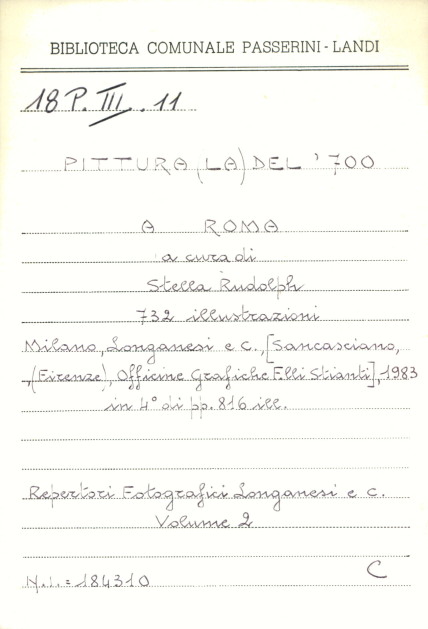 BIBLIOTECA COMUNALE PASSERINI - LANDI
18 P. III. 11
PITTURA (LA) DEL '700
A ROMA
a cura di
Stella Rudolph
732 illustrazioni
Milano, Longanesi e C., [Sancasciano,
(Firenze), Officine Grafiche F.lli Stianti], 1983
in 4° di pp. 816 ill.
Repertori Fotografici Longanesi e C.
Volume 2
N.i. = 184310
C